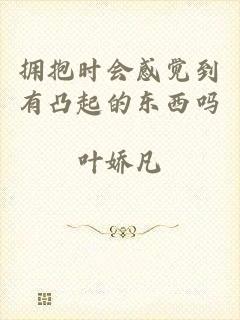 拥抱时会感觉到
有凸起的东西吗
叶娇凡